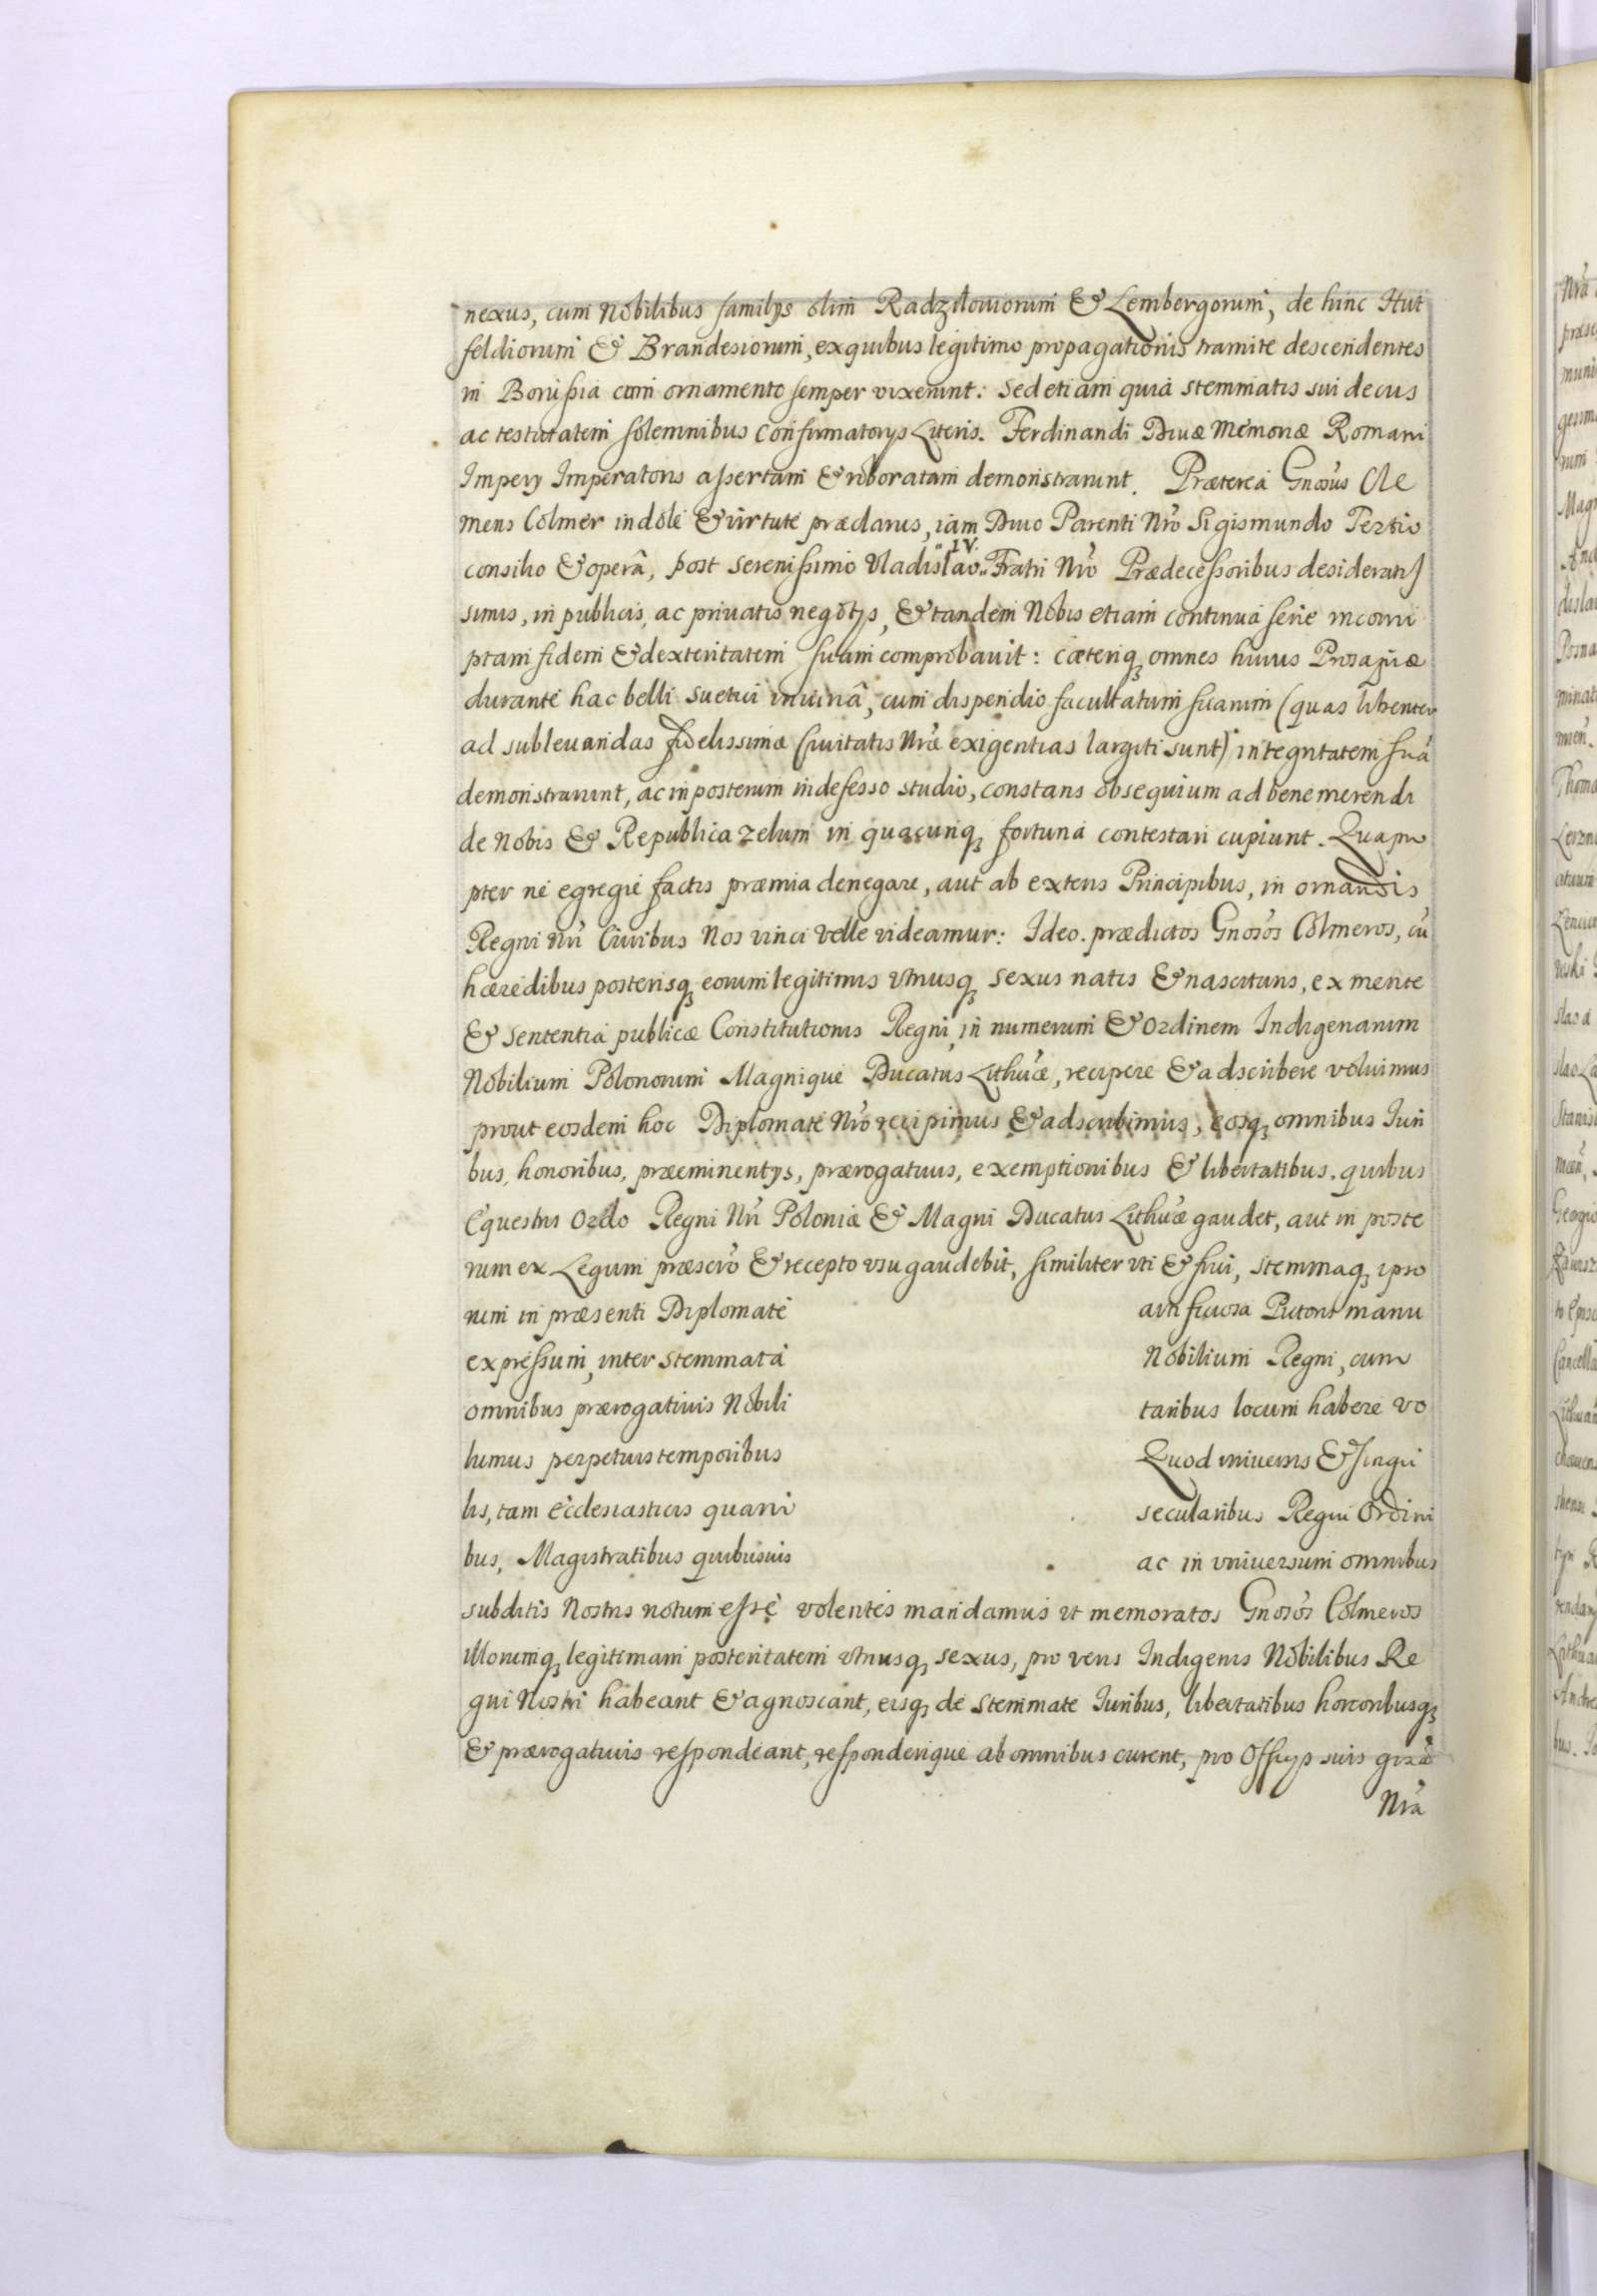 nexus, cum Nobilibus familijs olim Radziloviorum & Lembergorum, de hinc Hut
feldiorum & Brandesiorum, ex quibus legitimo propagationis tramite descendentes
in Borussia cum ornamento semper vixerunt: Sed etiam quia stemmatis sui decus
ac testutatem solemnibus Confirmatorijs Literis. Ferdinandi Divæ Memoriæ Romani
Imperij Imperatoris assertam & roboratam demonstrarunt. Præterea Gnosus Cle
mens Colmer indole & virtute præclarus, iam Divo Parenti Nro Sigismundo Tertio
consilio & operâ, post Serenissimo Vladislao IV. Fratri Nro Prædecessoribus desideratis
simis, in publicis, ac privatis negotijs, & tandem Nobis etiam continua serie incorru
ptam fidem & dexteritatem suam comprobavit: cæteriq omnes huius Prosapiæ
durante hac belli Suetici iniuriâ, cum dispendio facultatum suarum (quas libenter
ad sublevandas fidelissimæ Civitatis Nræ exigentias largiti sunt) integritatem suã
demonstrarunt, ac in posterum indefesso studio, constans obsequium ad bene merendi
de Nobis & Republica zelum in quacunq fortuna contestari cupiunt. Quapro
pter ne egregie factis præmia denegare, aut ab exteris Principibus, in ornandis
Regni Nri Civibus Nos vinci velle videamur: Ideo. prædictos Gnosos Colmeros, cũ
hæredibus posterisq eorum legitimis utriusq sexus natis & nascituris, ex mente
& Sententia publicæ Constitutionis Regni, in numerum & Ordinem Indigenarum
Nobilium Polonorum Magnique Ducatus Lithuæ, recipere & adscribere voluimus
prout eosdem hoc Diplomate Nro recipimus & adscribimus, eosq omnibus Iuri
bus, honoribus, præeminentijs, prærogativis, exemptionibus & libertatibus. quibus
Equestris Ordo Regni Nri Poloniæ & Magni Ducatus Lithuæ gaudet, aut in poste
rum ex Legum præscro & recepto usu gaudebit, similiter uti & frui, stemmaq ipso
rum in præsenti Diplomate artificiosa Pictoris manu
expressum, inter stemmata Nobilium Regni, cum
omnibus prærogativis Nobili taribus locum habere vo
lumus perpetuis temporibus Quod universis & singu
lis, tam Ecclesiasticis quam secularibus Regni Ordini
bus, Magistratibus quibusuis ac in universum omnibus
subditis Nostris notum esse volentes mandamus ut memoratos Gnosos Colmeros
illorumq legitimam posteritatem utriusq sexus, pro veris Indigenis Nobilibus Re
gni Nostri habeant & agnoscant, eisq de stemmate Iuribus, libertatibus honoribusq
& prærogativis respondeant, responderique ab omnibus curent, pro Officijs suis græ
Nra